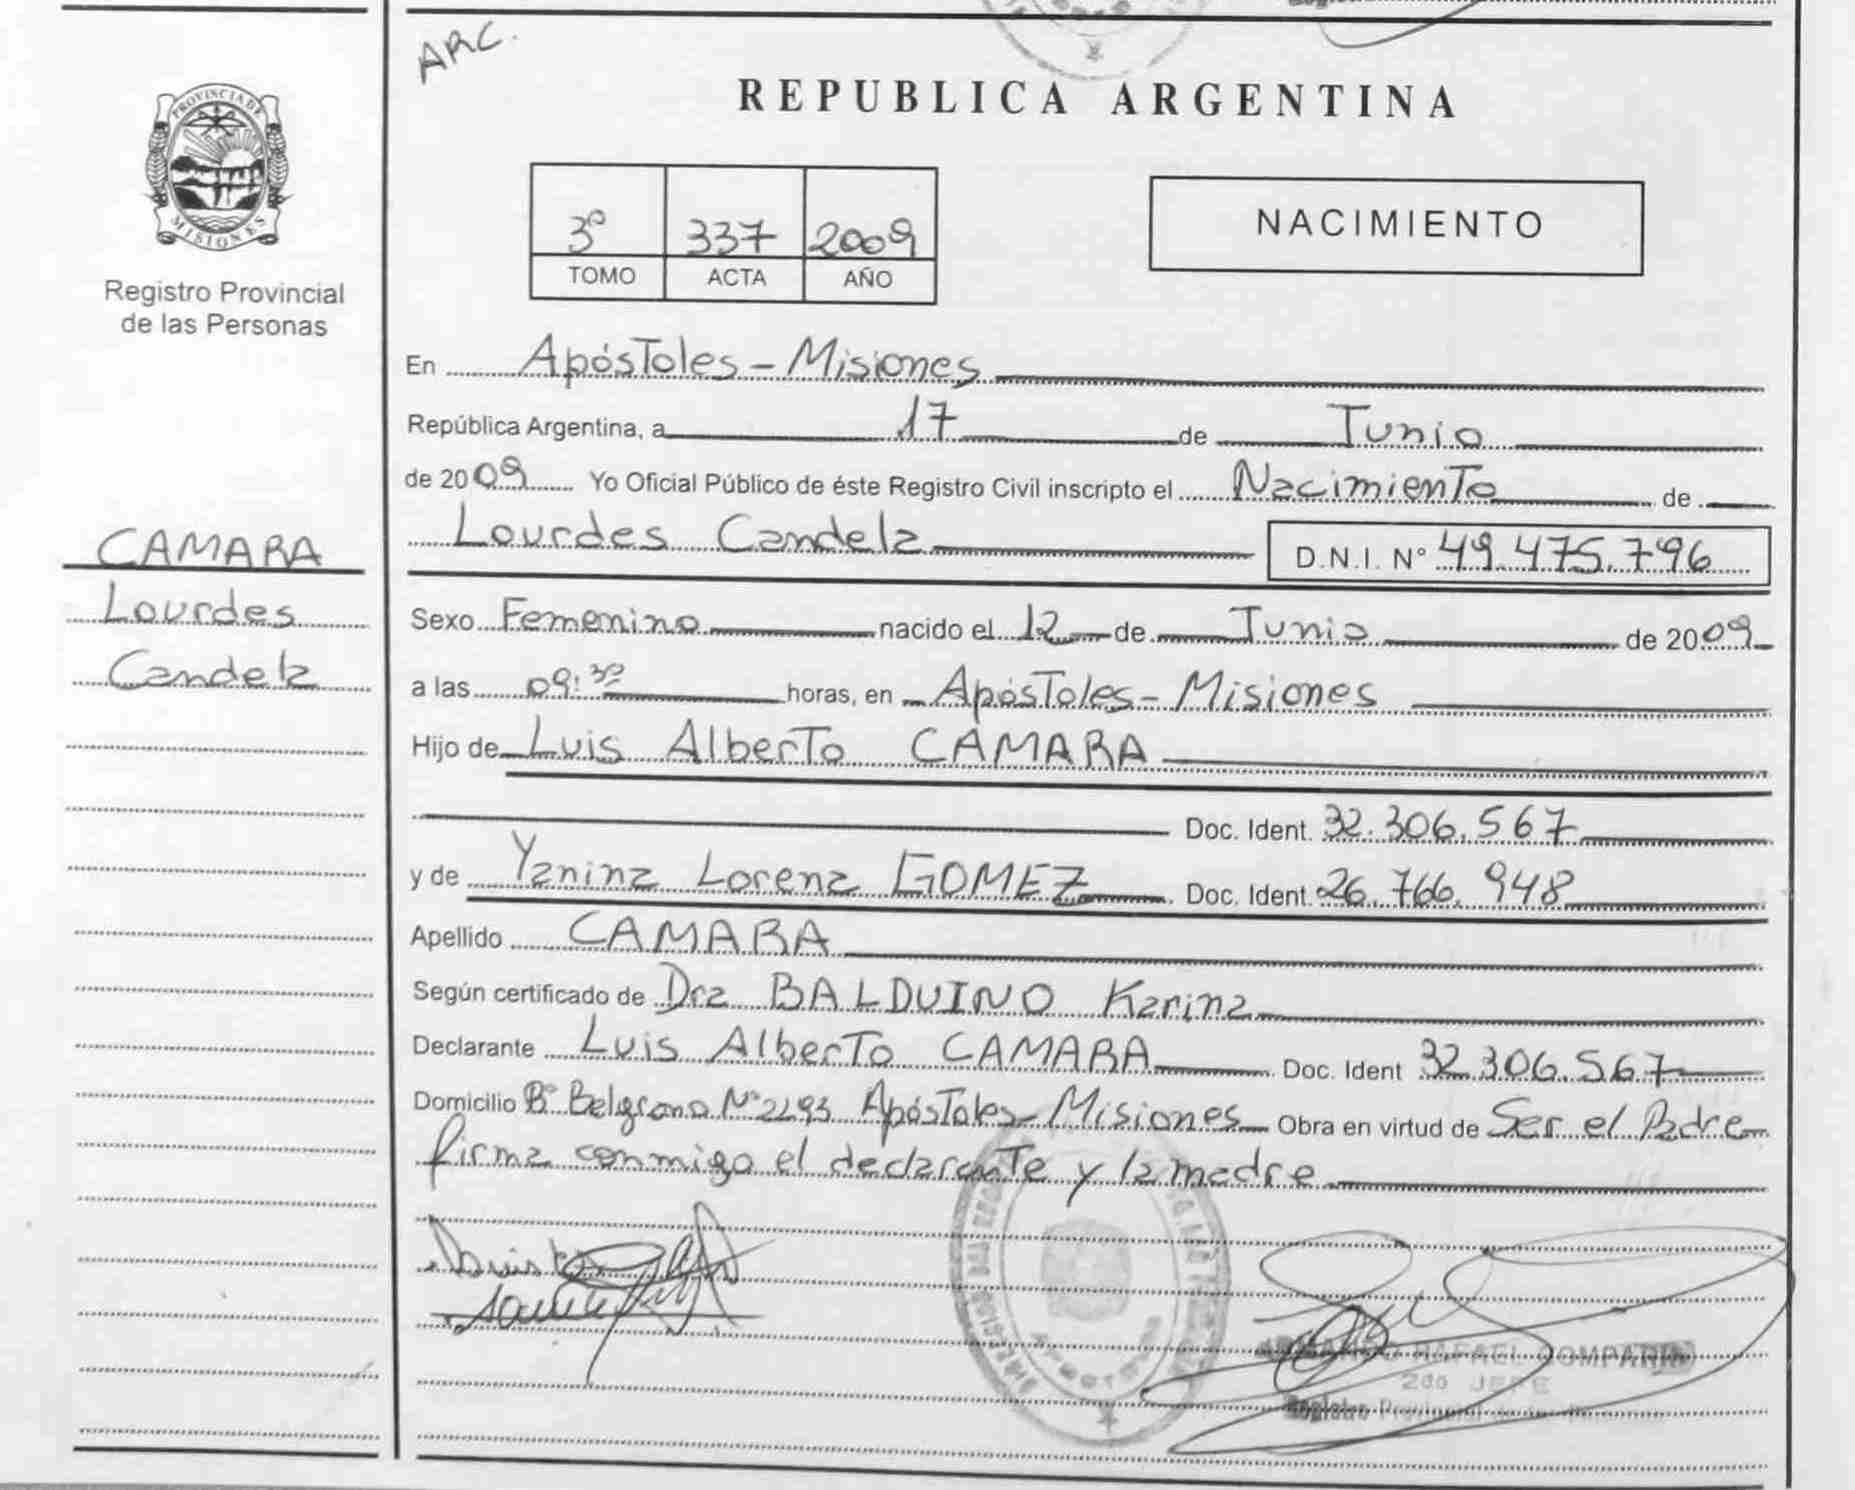 ARC.
PROVINCIA DE
MISIONES
Registro Provincial
de las Personas
CAMARA
Lourdes
Candela
REPUBLICA ARGENTINA
3º 337 2009
TOMO ACTA AÑO
NACIMIENTO
En Apóstoles - Misiones
República Argentina, a 17 de Junio
de 2009 Yo Oficial Público de éste Registro Civil inscripto el Nacimiento de
Lourdes Candela D.N.I. Nº 49.475.796
Sexo Femenino nacido el 12 de Junio de 2009
a las 09:30 horas, en Apóstoles - Misiones
Hijo de Luis Alberto CAMARA
Doc. Ident. 32.306.567
y de Yanina Lorena GOMEZ Doc. Ident. 26.766.948
Apellido CAMARA
Según certificado de Dra BALDUINO Karina
Declarante Luis Alberto CAMARA Doc. Ident 32.306.567
Domicilio Bº Belgrano Nº 2293 Apóstoles - Misiones Obra en virtud de Ser el Padre
firma conmigo el declarante y la madre
RAFAEL
2do JEFE
Registro Provincial de las Personas